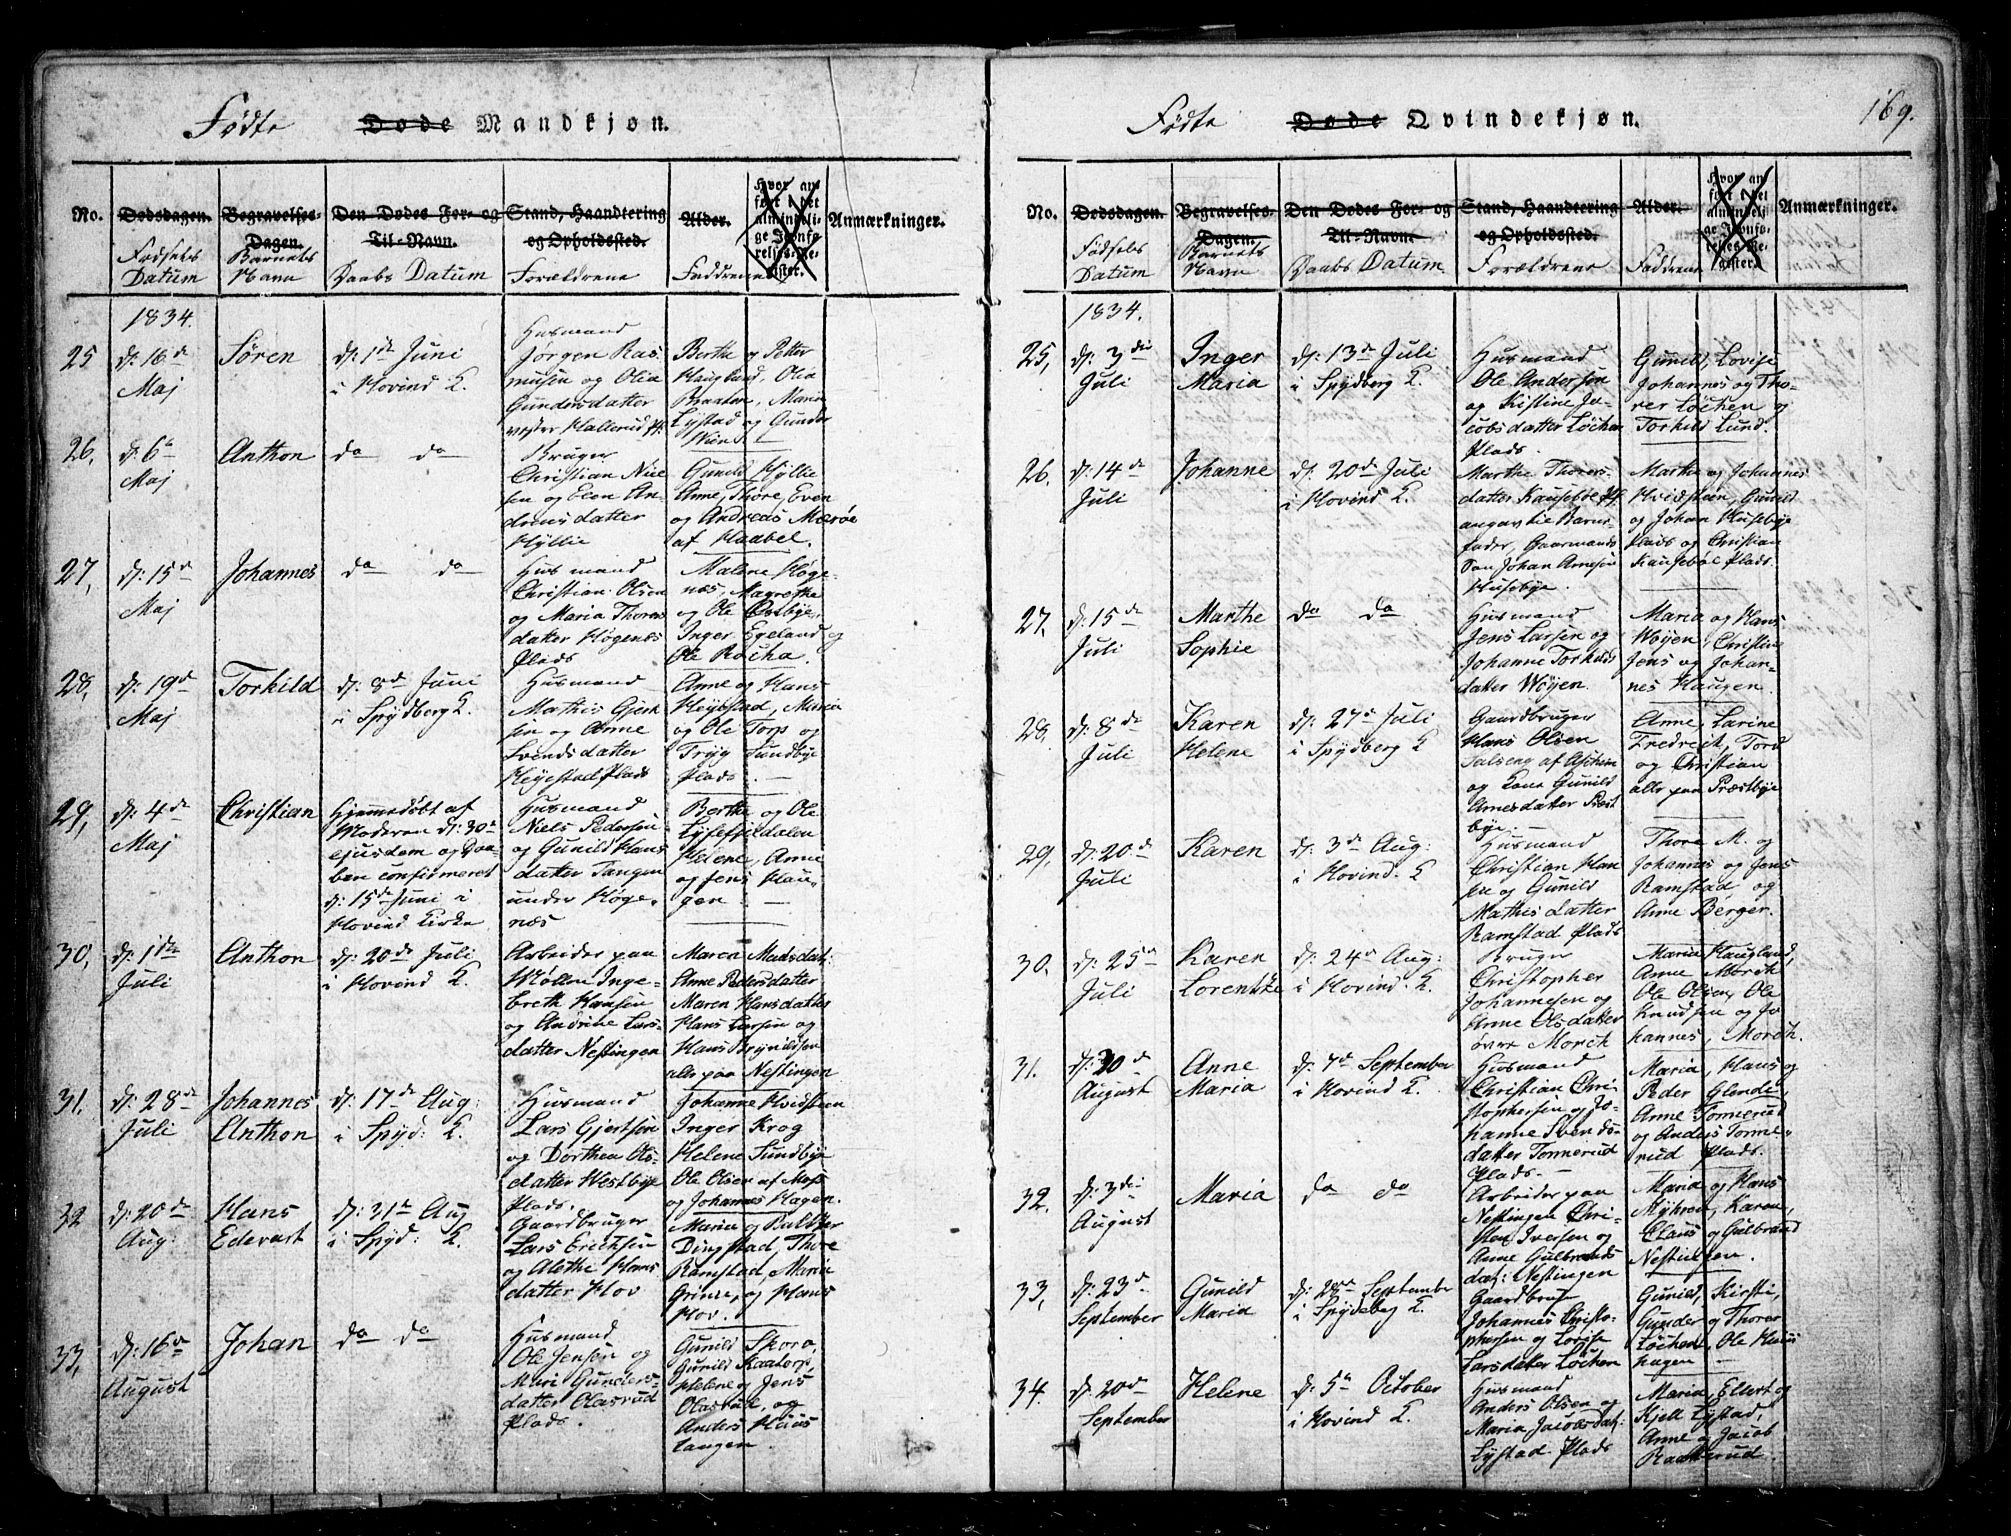 Fødte Døde Mandkjøn.
No.
Dødsdagen.
Fødsels
Datum
Begravelses-
Dagen.
Barnets
Navn
Den Dødes For- og
Til-Navn.
Daabs Datum
Stand, Haandtering
og Opholdssted.
Forældrene
Alder.
Faddrene
Hvor an
ført i det
almindeli-
ge Jevnfø-
relses-Re-
gister.
Anmærkninger.
1834.
25
d: 16de
Maj
Søren
d: 1ste Juni
i Hovind K.
Husmand
Jørgen Ras
musen og Olia
Gundersdatter
vester Hallerud Pl:
Berthe og Petter
Haugland, Olia
Braaten, Maria
Lÿstad og Gunder
26,
d: 6te
Maj
Anthon
do do
Bruger
Christian Niel
sen og Elen An
dreasdatter
Hÿllie
Gunild Hÿllie
Anne, Thore, Even
og Andreas Mærøe
af Haabel.
27,
d: 15de
Maj
Johannes
do do
Husmand
Christian Olsen
og Maria Thores
datter Høgenæs
Plads
Malene Høge
næs, Magrethe
og Ole Østbye,
Inger Egeland og
Ole Rocha.
28,
d: 19de
Maj
Torkild
d: 8de Juni
i Spÿdberg K.
Husmand
Mathis Gjert
sen og Anne
Svendsdatter
Heÿestad Plads
Anne og Hans
Heÿestad, Maria
og Ole Torp og
Trÿg Sundbÿe
Plads.
29,
d: 4de
Maj
Christian
Hjemmedøbt af
Moderen d: 30te
ejusdem og Daa-
ben confirmeret
d: 15de Juni i
Hovind Kirke
Husmand
Niels Pedersen
og Gunild Hans
datter Tangen
under Høge-
næs
Berthe og Ole
Lÿseffjeldalen
Helene, Anne
og Jens Hau-
gen
30,
d: 1ste
Juli
Anthon
d: 20de Juli
i Hovind K.
Arbeider paa
Møllen Inge-
breth Hansen
og Andrine Lars-
datter Nestingen
Maren Madsdat:
Anne Pedersdatter
Maren Hansdatter
Hans Larsen og
Hans Brÿnildsen
alle paa Nestingen
31.
d: 28de
Juli
Johannes
Anthon
d: 17de Aug:
i Spÿd: K.
Husmand
Lars Gjertsen
og Dorthea Ols-
datter Westbÿe
Plads.
Johanne Hvidsteen
Inger Krog
Helene Sundbÿe
Ole Olsen af Moss
og Johannes Hagen.
32
d: 20de
Aug:
Hans
Edevart
d: 31te Aug
i Spÿd: K.
Gaardbruger
Lars Erichsen
og Alethe Hans
datter Hov
Maria og Baltzer
Dingstad, Thore
Ramstad, Maria
Grime, og Hans
Hov.
33,
d: 16de
August
Johan
do do
Husmand
Ole Jensen og
Mari Gunders-
datter Olasrud
Plads.
Gunild Skoro,
Gunild Kaatorp,
Helene og Jens
Olasrud, og
Anders Huus
tangen.
Fødte Døde Qvindekjøn.
169.
No.
Dødsdagen.
Fødsels
Datum
Begravelses-
Dagen.
Barnets
Navn
Den Dødes For- og
Til-Navn.
Daabs Datum
Stand, Haandtering
og Opholdssted.
Forældrene
Alder.
Faddrene
Hvor an
ført i det
almindeli-
ge Jevnfø-
relses-Re-
gister.
Anmærkninger.
1834.
25,
d: 3die
Juli
Inger
Maria
d: 13de Juli
i Spÿdberg K.
Husmand
Ole Andersen
og Kistine Ja-
cobsdatter Løchen
Plads.
Gunild, Lovise
Johannes og Tho-
rer Løchen og
Torkild Lund.
26,
d: 14de
Juli
Johanne
d: 20de Juli
i Hovind K.
Marthe Thores-
datter Kausebøl Pl:
angav til Barne-
fader, Gaarmands
Søn Johan Arnesen
Husebÿe.
Marthe og Johannes
Hvidsteen, Gunild
og Johan Husebÿe
Plads og Christian
Kausebøl Plads.
27,
d: 15de
Juli
Marthe
Sophie
do do
Husmand
Jens Larsen og
Johanne Torkilds
datter Wøÿen.
Maria og Hans
Wøÿen, Christine
Jens og Johan-
nes Haugen.
28,
d: 8de
Juli
Karen
Helene
d: 27de Juli
i Spÿdberg K
Gaardbruger
Hans Olsen
Talseng af Aschim
og Kone Gunild
Arnesdatter Præst
bÿe.
Anne, Larine
Fredreit, Tord
og Christian
alle paa Præstbÿe
29,
d: 20de
Juli
Karen
d: 3de Aug:
i Hovind. K
Husmand
Christian Han
sen og Gunild
Mathisdatter
Ramstad Plads
Thore M. og
Johannes og Jens
Ramstad og
Anne Berger.
30.
d: 25de
Juli
Karen
Lorentze
d: 24de Aug:
i Hovind. K.
Bruger
Christopher
Johannesen og
Anne Olsdatter
øvre Morch
Maria Haugland,
Anne Morch
Ole Olsen, Ole
Knudsen og Jo
hannes, Morch.
31.
d: 30de
August
Anne
Maria
d: 7de September
i Hovind K.
Husmand
Christian Chri-
stophersen og Jo-
hanne Svends-
datter Tommerud
Plads.
Maria, Hans og
Peder Glende,
Anne Tommerud
og Anders Tomme-
rud Plads.
32,
d: 3die
August
Maria
do do
Arbeider paa
Nestingen Chri-
sten Iversen og
Anne Gulbrands
dat: Nestingen
Maria og Hans
Mÿhren, Karen,
Claus og Gulbrand
Nestingen.
33,
d: 23de
September
Gunild
Maria
d: 28de September
i Spÿdeberg K.
Gaardbrug
Johannes Christo-
phersen og Lovise
Larsdatter Løchen
Gunild, Kirsti,
Gunder og Thorer
Løchen Ole Huus
hagen
34.
d: 20de
September
Helene
d: 5te October
i Hovind K.
Husmand
Anders Olsen og
Maria Jacobsdat:
Lÿstad Plads
Maria, Ellert og
Kjell Lÿstad,
Anne og Jacob
Raakerud.